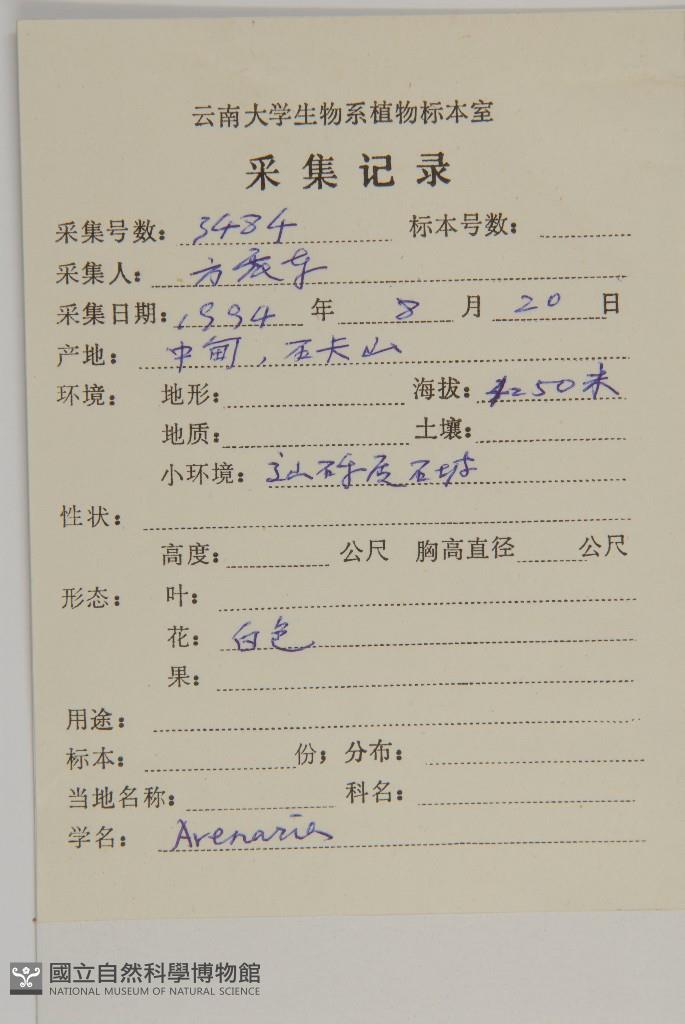 云南大学生物系植物标本室
采集记录
采集号数: 3484 标本号数:
采集人: 方震东
采集日期: 1994 年 8 月 20 日
产地: 中甸, 石卡山
环境: 地形: 海拔: 4250米
地质: 土壤:
小环境: 砾质石坡
性状:
高度: 公尺 胸高直径 公尺
形态: 叶:
花: 白色
果:
用途:
标本: 份; 分布:
当地名称: 科名:
学名: Arenaria
國立自然科學博物館
NATIONAL MUSEUM OF NATURAL SCIENCE